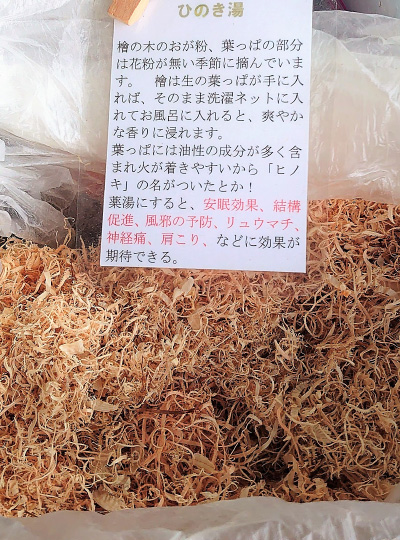 ひのき湯
檜の木のおが粉、葉っぱの部分
は花粉が無い季節に摘んでいま
す。 檜は生の葉っぱが手に入
れば、そのまま洗濯ネットに入
れてお風呂に入れると、爽やか
な香りに浸れます。
葉っぱには油性の成分が多く含
まれ火が着きやすいから「ヒノ
キ」の名がついたとか！
薬湯にすると、安眠効果、結構
促進、風邪の予防、リュウマチ、
神経痛、肩こり、などに効果が
期待できる。